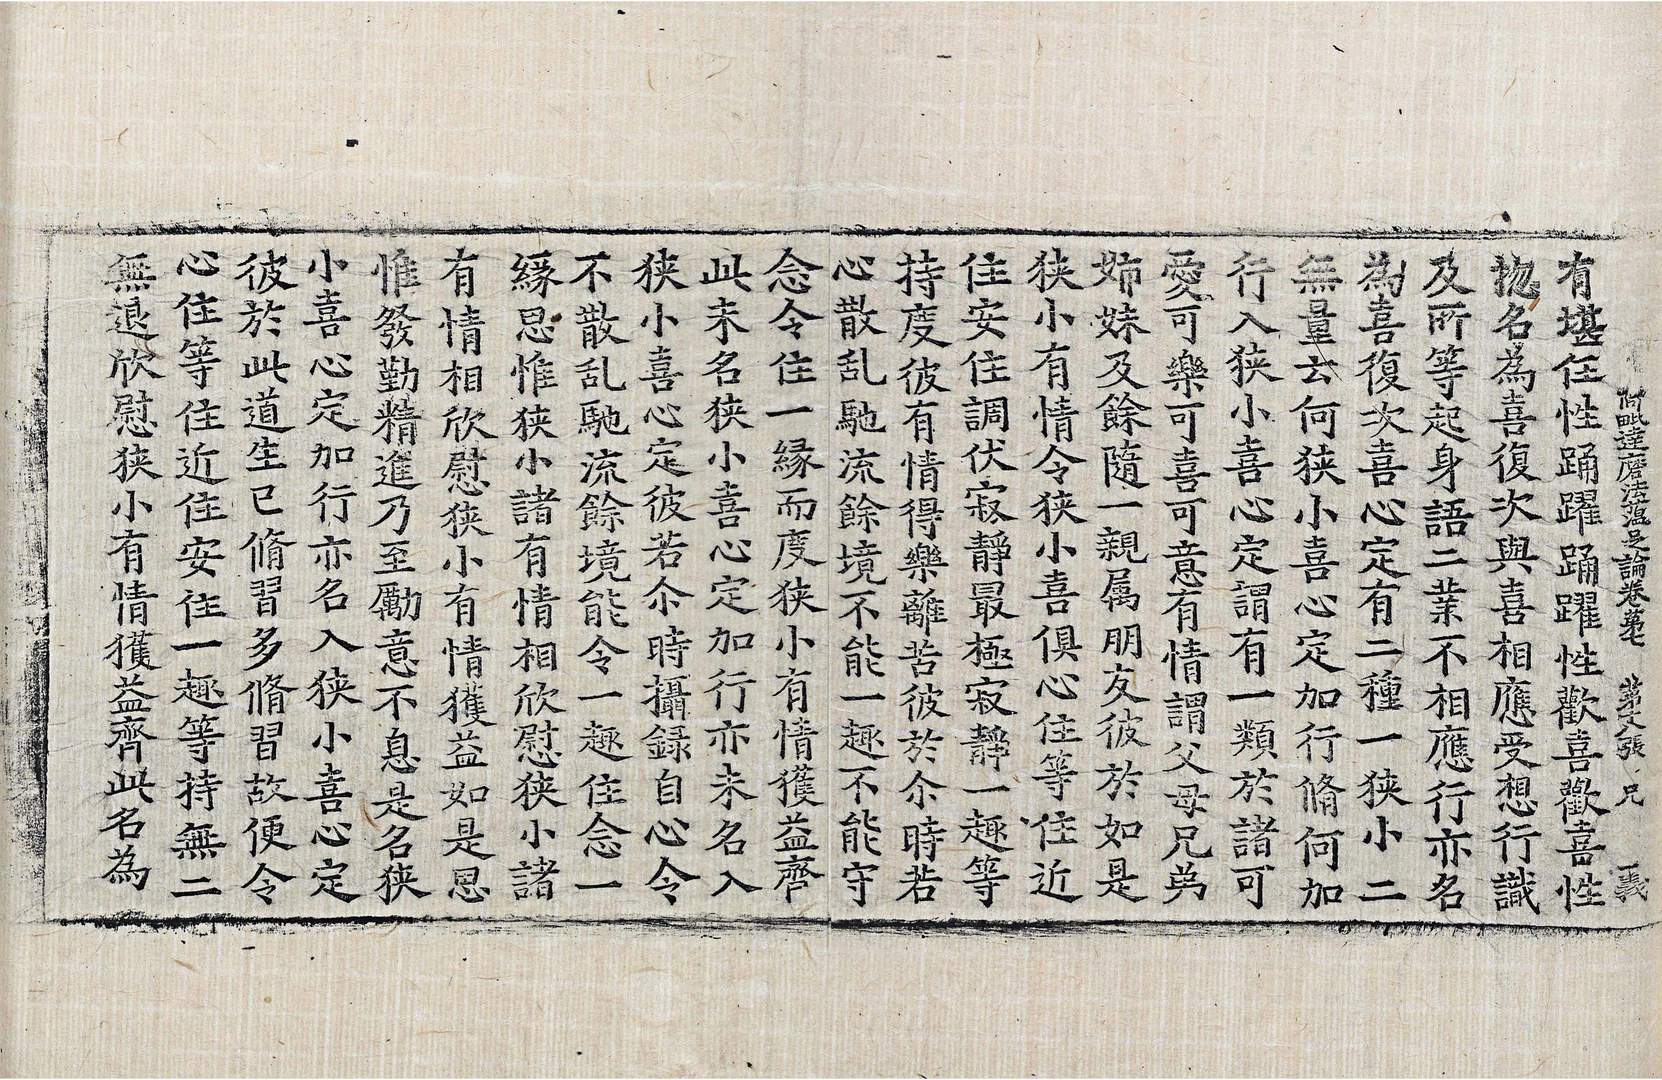 阿毗達磨法蘊足論卷第七 第文張 兄 義
有堪任性踊躍踊躍性歡喜歡喜性
揔名為喜復次與喜相應受想行識
及所等起身語二業不相應行亦名
為喜復次喜心定有二種一狹小二
無量云何狹小喜心定加行脩何加
行入狹小喜心定謂有一類於諸可
愛可樂可喜可意有情謂父母兄弟
姉妹及餘隨一親属朋友彼於如是
狹小有情令狹小喜俱心住等住近
住安住調伏寂靜最極寂靜一趣等
持度彼有情得樂離苦彼於尒時若
心散乱馳流餘境不能一趣不能守
念令住一緣而度狹小有情獲益齊
此未名狹小喜心定加行亦未名入
狹小喜心定彼若尒時攝錄自心令
不散乱馳流餘境能令一趣住念一
緣思惟狹小諸有情相欣慰狹小諸
有情相欣慰狹小有情獲益如是思
惟發勤精進乃至勵意不息是名狹
小喜心定加行亦名入狹小喜心定
彼於此道生已脩習多脩習故便令
心住等住近住安住一趣等持無二
無退欣慰狹小有情獲益齊此名為